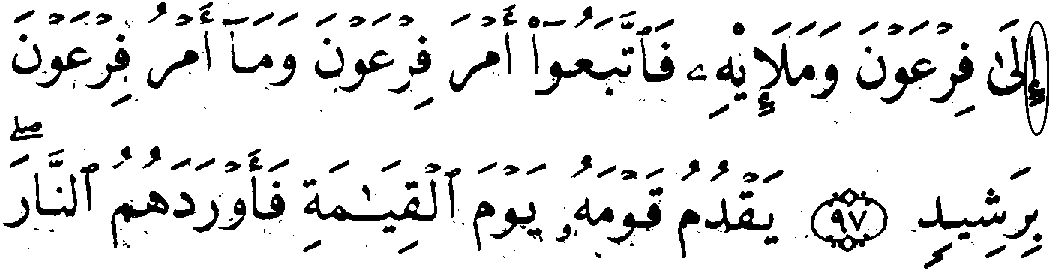 إِلَىٰ فِرْعَوْنَ وَمَلَإِيْهِۦ فَٱتَّبَعُوٓا۟ أَمْرَ فِرْعَوْنَ وَمَآ أَمْرُ فِرْعَوْنَ
بِرَشِيدٍ ٩٧ يَقْدُمُ قَوْمَهُۥ يَوْمَ ٱلْقِيَـٰمَةِ فَأَوْرَدَهُمُ ٱلنَّارَ ۖ